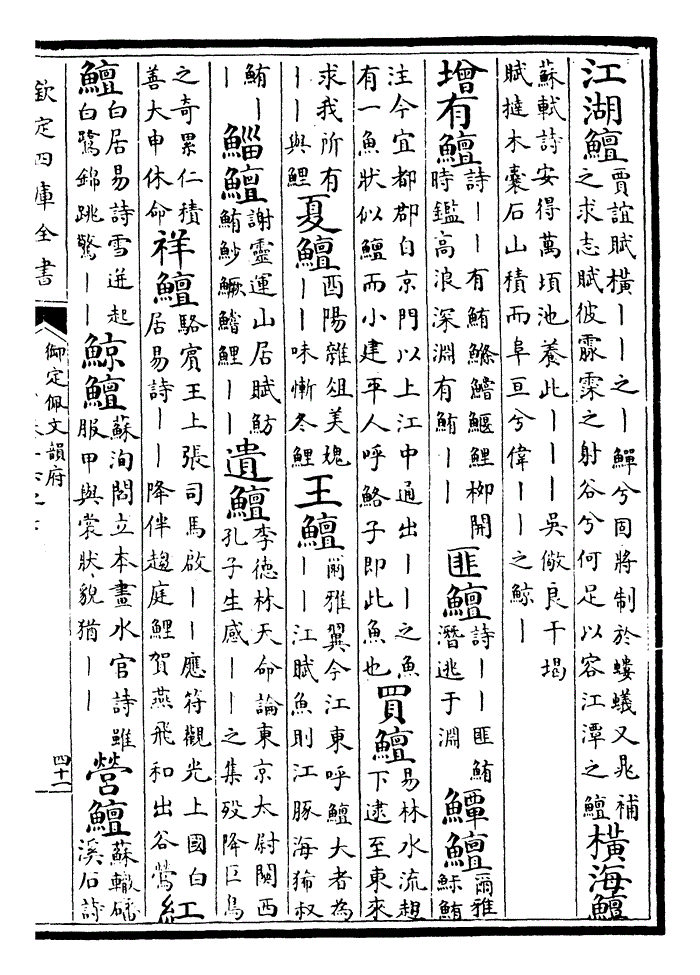 江湖鱣賈誼賦橫——之—鱏兮固將制於螻蟻又晁補之求志賦彼霢霂之射谷兮何足以容江潭之鱣橫海鱣
蘇軾詩安得萬頃池養此———吳儆良干堨賦揵木囊石山積而阜亘兮偉——之鯨—
增有鱣詩——有鮪鰷鱨鰋鯉柳開時鑑高浪深淵有鮪——匪鱣詩——匪鮪潛逃于淵鱏鱣爾雅鮛鮪
注今宜都郡自京門以上江中通出——之魚有一魚狀似鱣而小建平人呼鮥子即此魚也買鱣易林水流趨下逮至東來
求我所有——與鯉夏鱣酉陽雜俎美瑰——味慚冬鯉王鱣爾雅翼今江東呼鱣大者為——江賦魚則江豚海狶叔
鮪——鯔鱣謝靈運山居賦魴鮪魦鱖鱨鯉——遺鱣李德林天命論東京太尉關西孔子生感——之集歿降巨鳥
之奇累仁積善大申休命祥鱣駱賓王上張司馬啟——應符觀光上國白居易詩——降伴趨庭鯉賀燕飛和出谷鶯紅
鱣白居易詩雪迸起白鷺錦跳驚——鯨鱣蘇洵閻立本畫水官詩雖服甲與裳狀貌猶——營鱣蘇轍磻溪石詩
欽定四庫全書
御定佩文韻府
四十一